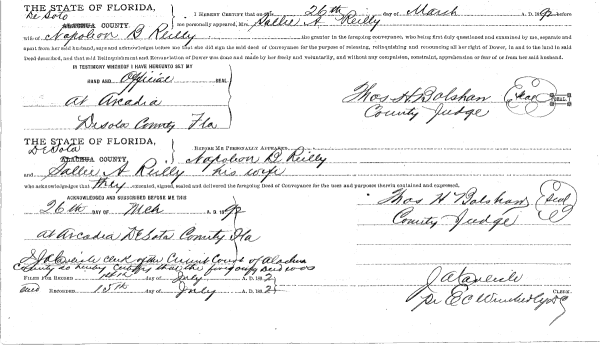 THE STATE OF FLORIDA,
De Soto
ALACHUA COUNTY.
I HEREBY CERTIFY that on 26th day of March A. D. 1892 before
me personally appeared, Mrs. Sallie A Reilly
wife of Napoleon B Reilly the grantor in the foregoing conveyance, who being first duly questioned and examined by me, separate and
apart from her said husband, says and acknowledges before me that she did sign the said deed of Conveyance for the purpose of releasing, relinquishing and renouncing all her right of Dower, in and to the land in said
Deed described, and that said Relinquishment and Renunciation of Dower was done and made by her freely and voluntarily, and without any compulsion, constraint, apprehension or fear of or from her said husband.
IN TESTIMONY WHEREOF I HAVE HEREUNTO SET MY
HAND AND Official SEAL
At Arcadia
Desota County Fla
Thos H Bolshan Seal SEAL
County Judge
THE STATE OF FLORIDA,
DeSota
ALACHUA COUNTY
BEFORE ME PERSONALLY APPEARED Napoleon B Reilly
and Sallie A Reilly his wife
who acknowledges that they executed, signed, sealed and delivered the foregoing Deed of Conveyance for the uses and purposes therein contained and expressed.
ACKNOWLEDGED AND SUBSCRIBED BEFORE ME THIS
26th DAY OF Mch A. D. 1892
at Arcadia DeSota County Fla
Thos H Bolshan Seal
County Judge
I J A Carlisle clerk of the Circuit Court of Alachua
County do hereby certify that the foregoing Deed was
FILED FOR RECORD day of July A. D. 1892
and RECORDED 15th day of July A. D. 1892
J A Carlisle CLERK
Pr E C